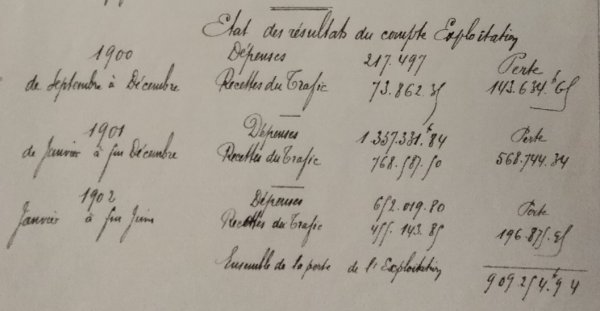 Etat des résultats du compte Exploitation
1900 Dépenses 217.497 Perte
de Septembre à Décembre Recettes du Trafic 73.862.35 143.634.f65
1901 Dépenses 1.337.331.f84 Perte
de Janvier à fin Décembre Recettes du Trafic 768.587.50 568.744.34
1902 Dépenses 652.019.80 Perte
Janvier à fin Juin Recettes du Trafic 455.143.85 196.875.95
Ensemble de la perte de l'Exploitation 909.254.f94